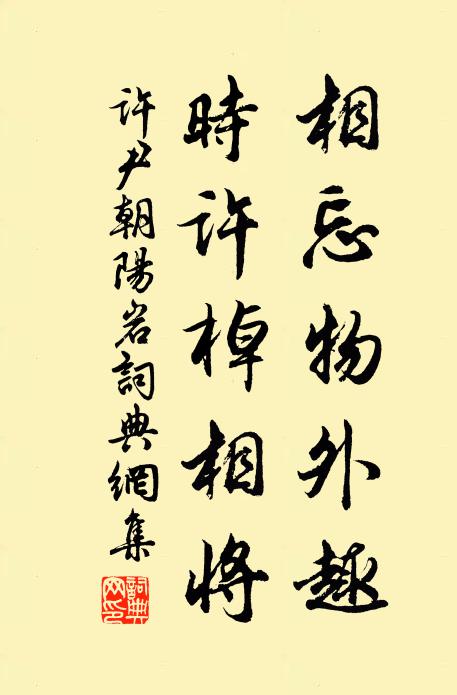 相忘物外趣
時許棹相將
許尹朝陽岩詞典網集
詞典網印